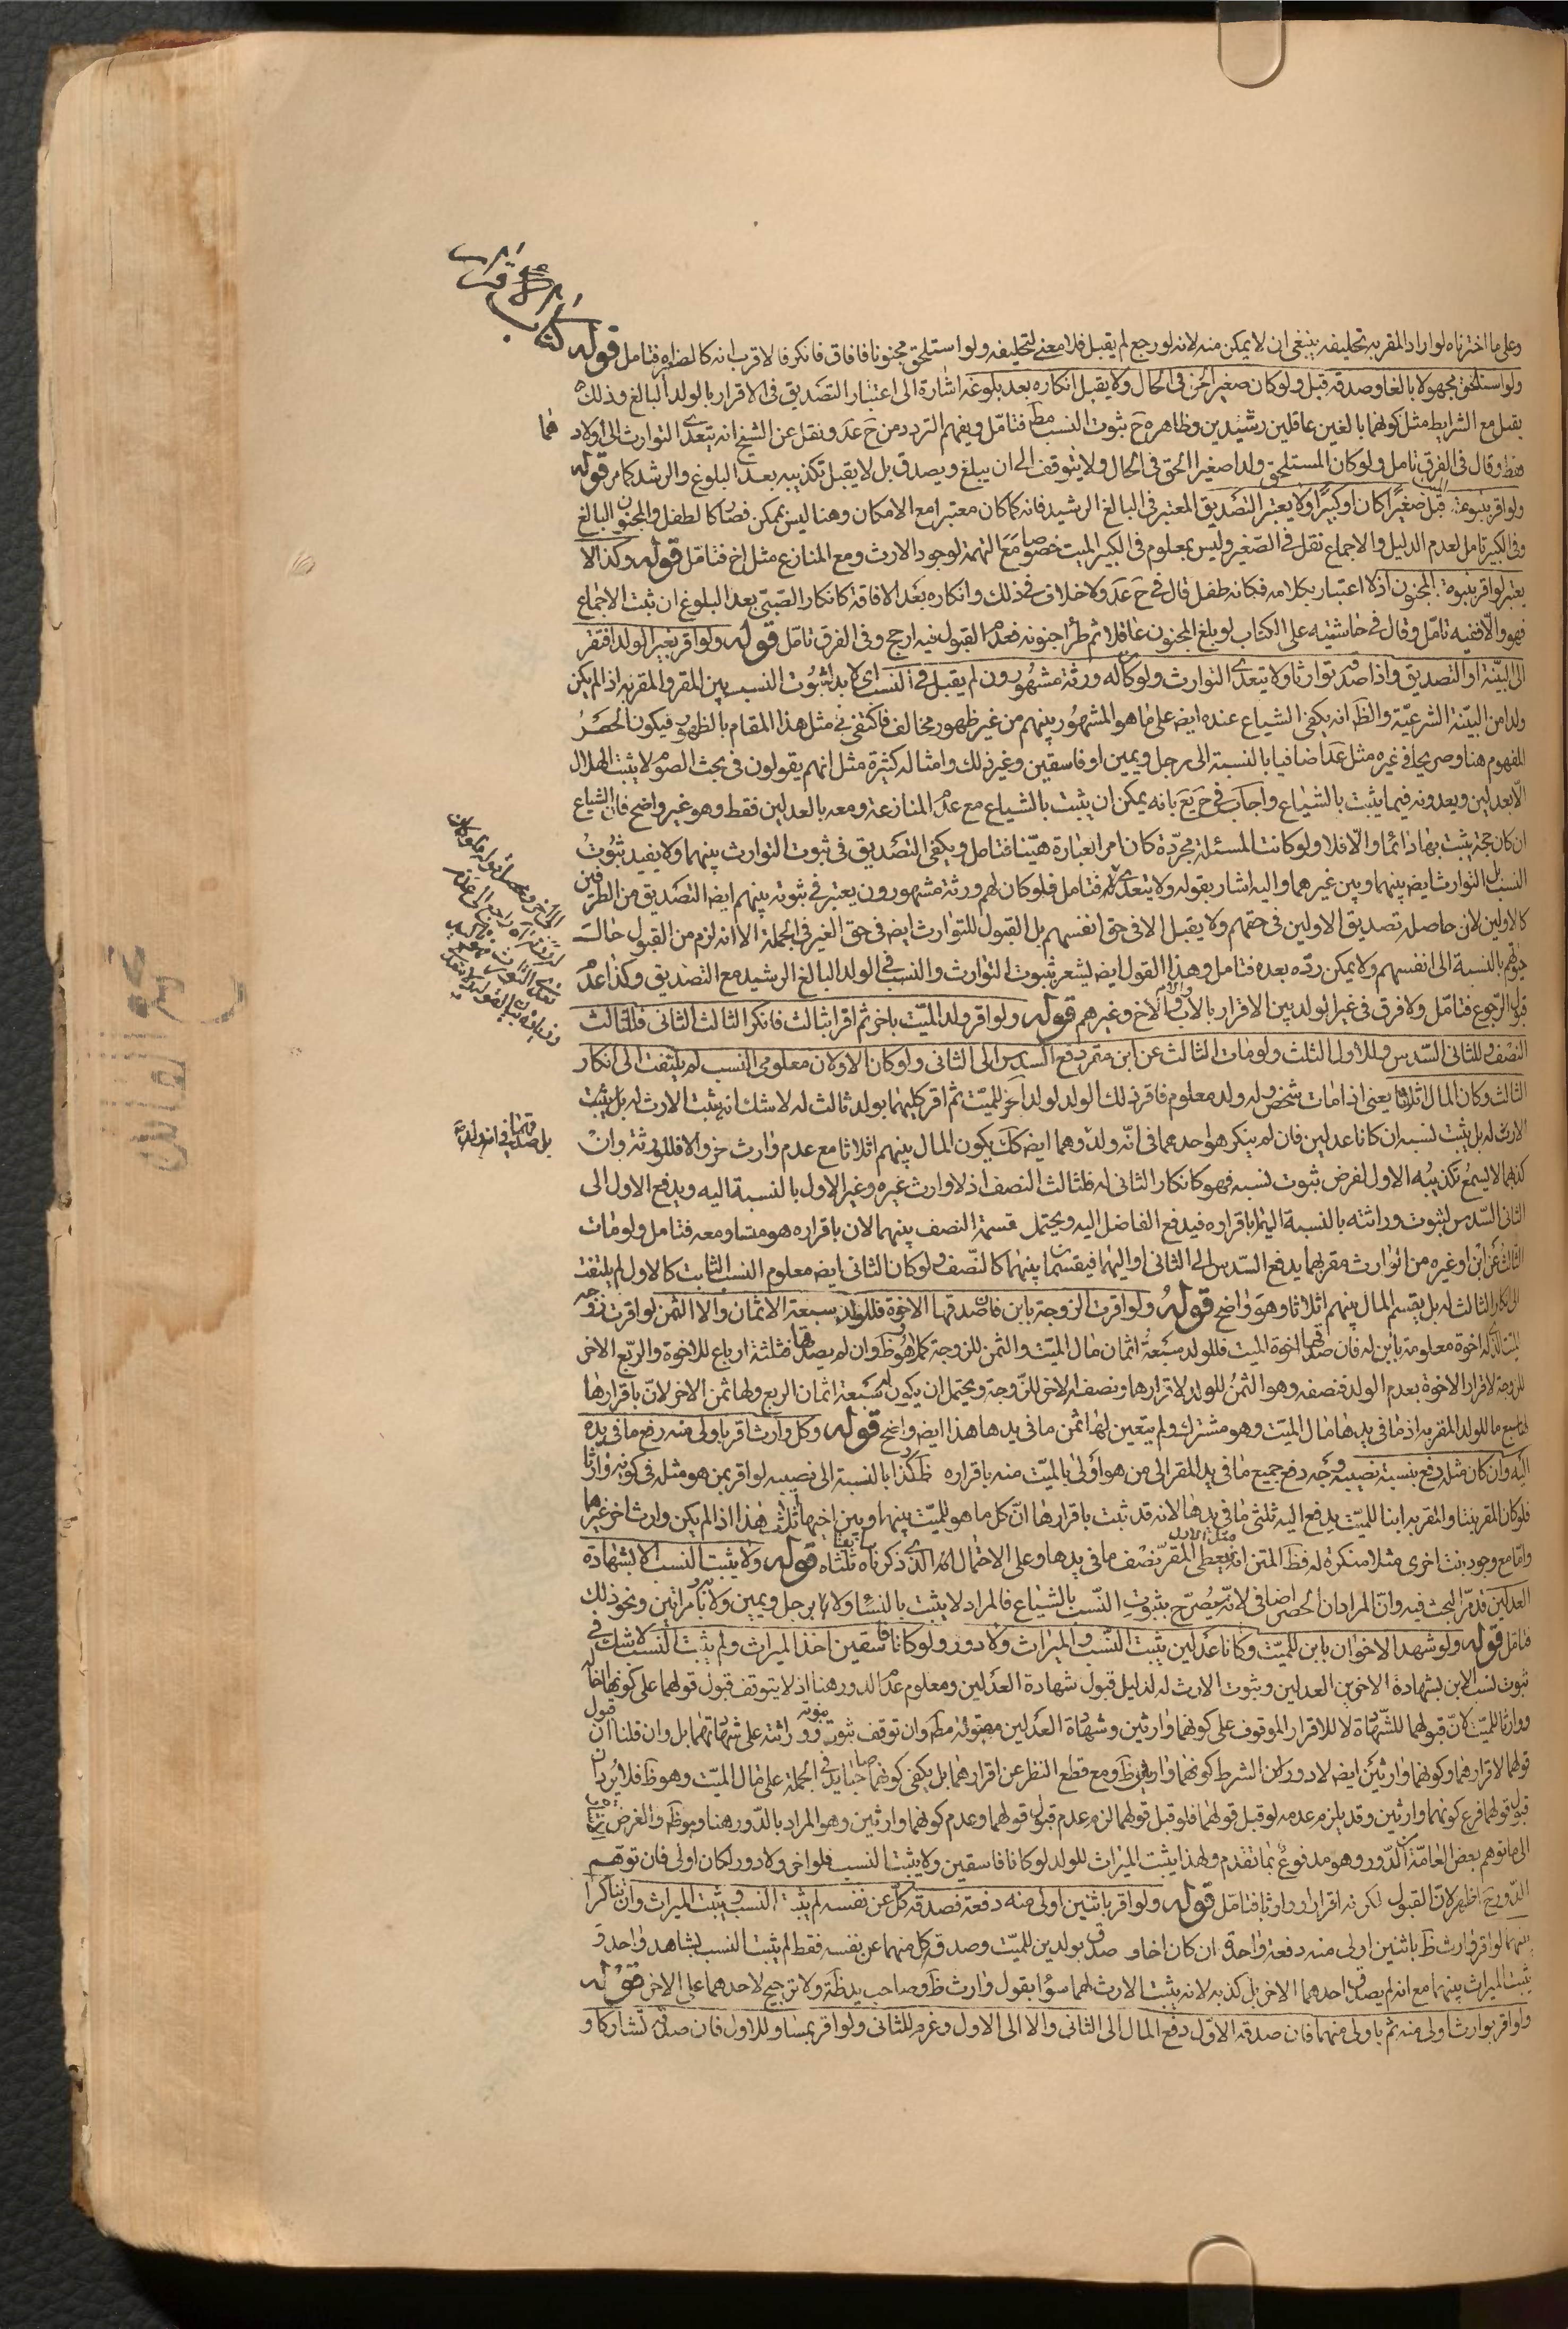 كتاب الاقرار
وعلى ما اخترناه لو اراد المقر به تحليفه ينبغى ان لا يمكن منه لانه لو رجع لم يقبل فلا معنى لتحليفه ولو استلحق مجنونا فافاق فانكر فالاقرب انه كالصغير فتامل قوله
ولو استلحق مجهولا بالغا وصدقه قبل ولو كان صغيرا لحق فى الحال ولا يقبل انكاره بعد بلوغه اشارة الى اعتبار التصديق فى الاقرار بالولد البالغ وذلك
يقبل مع الشرايط مثل كونهما بالغين عاقلين رشيدين وظاهره ح ثبوت النسب مط فتامل ويفهم التردد من ح عد ونقل عن الشيخ انه يتعدى التوارث الى اولاد هما
فقط وقال فى الفرق تامل ولو كان المستلحق ولدا صغيرا لحق فى الحال ولا يتوقف الى ان يبلغ ويصدق بل لا يقبل تكذيبه بعد البلوغ والرشد كما مر قوله
ولو اقر ببنوة الميت قبل صغيرا كان او كبيرا ولا يعتبر التصديق المعتبر فى البالغ الرشيد فانه كما كان معتبرا مع الامكان وهنا ليس بممكن فصار كالطفل والمجنون البالغ
وفى الكبير تامل لعدم الدليل والاجماع نقل فى الصغير وليس بمعلوم فى الكبير الميت خصوصا مع التهمة لوجود الارث ومع المنازع مثل اخ فتامل قوله وكذا لا
يعتبر لو اقر ببنوة المجنون اذ لا اعتبار بكلامه فكانه طفل قال فى ح عد ولا خلاف فى ذلك وانكاره بعد الافاقة كانكار الصبى بعد البلوغ ان ثبت الاجماع
فهو والا ففيه تامل وقال فى حاشيته على الكتاب لو بلغ المجنون عاقلا ثم طرأ جنونه فعدم القبول فيه ارجح وفى الفرق تامل قوله ولو اقر بغير الولد افتقر
الى البينة او التصديق واذا صدقه توارثا ولا يتعدى التوارث ولو كان له ورثة مشهورون لم يقبل فى النسب اى لا بد لثبوت النسب بين المقر والمقر به اذا لم يكن
ولدا من البينة الشرعية والظ انه يكفى الشياع عنده ايض على ما هو المشهور بينهم من غير ظهور مخالف فاكتفى فى مثل هذا المقام بالظهور فيكون الحصر
المفهوم هنا وصريحا فى غيره مثل عد اضافيا بالنسبة الى رجل ويمين او فاسقين وغير ذلك وامثاله كثيرة مثل انهم يقولون فى بحث الصوم لا يثبت الهلال
الا بعدلين ويعدونه فيما يثبت بالشياع واجاب فى ح يع بانه يمكن ان يثبت بالشياع مع عدم المنازعة ومعه بالعدلين فقط وهو غير واضح فان الشياع
ان كان حجة يثبت بها دائما والا فلا ولو كانت المسئلة مجردة كان امر العبارة هينا فتامل ويكفى التصديق فى ثبوت التوارث بينهما ولا يفيد ثبوت
النسب بل التوارث ايض بينهما وبين غيرهما واليه اشار بقوله ولا يتعدى الخ فتامل فلو كان لهم ورثة مشهورون يعتبر فى ثبوته بينهم ايض التصديق من الطرفين
كالاولين لان حاصله تصديق الاولين فى حقهم ولا يقبل الا فى حق انفسهم بل القبول للتوارث ايض فى حق الغير فى الجملة الا انه لزم من القبول حالت
حيوتهم بالنسبة الى انفسهم ولا يمكن رده بعده فتامل وهذا القول ايض ليشعر بثبوت التوارث والنسب فى الولد البالغ الرشيد مع التصديق وكذا عدم
قبول الرجوع فتامل ولا فرق فى غير الولد بين الاقرار بالاب والام والاخ وغيرهم قوله ولو اقر ولد الميت باخر ثم اقرا بثالث فانكر الثالث الثانى فللثالث
النصف وللثانى السدس وللاول الثلث ولو مات الثالث عن ابن مقر دفع السدس الى الثانى ولو كان الاولان معلومى النسب لم يلتفت الى انكار
الثالث وكان المال اثلاثا يعنى اذا مات شخص وله ولد معلوم فاقر ذلك الولد لولد اخر للميت ثم اقر كليهما بولد ثالث له لا شك انه يثبت الارث له بل يثبت
الارث له بل يثبت نسبه ان كانا عدلين فان لم ينكر هو احدهما فى انه ولد وهما ايض كك يكون المال بينهم اثلاثا مع عدم وارث اخر والا فللورثة وان
كذبهما لا يسمع تكذيبه الاول لفرض ثبوت نسبه فهو كانكار الثانى له فللثالث النصف اذ لا وارث غيره وغير الاول بالنسبة اليه ويدفع الاول الى
الثانى السدس لثبوت وراثته بالنسبة اليهما باقراره فيدفع الفاضل اليه ويحتمل قسمة النصف بينهما لان باقراره هو مساو معه فتامل ولو مات
الثالث عن ابن او غيره من الوارث مقر بهما يدفع السدس الى الثانى او اليهما فيقسمان بينهما كالنصف ولو كان الثانى ايض معلوم النسب الثابت كالاول لم يلتفت
الى انكار الثالث له بل يقسم المال بينهم اثلاثا وهو واضح قوله ولو اقرت الزوجة بابن فان صدقها الاخوة فللولد سبعة الاثمان والا الثمن لو اقرت زوجة
الميت الذى له اخوة معلومة بابن له فان صدقها اخوة الميت فللولد سبعة اثمان مال الميت والثمن للزوجة كما هو ظ وان لم يصدقها فثلثة ارباع للاخوة والربع الاخر
للزوجة لاقرار الاخوة بعدم الولد فنصفه وهو الثمن للولد لاقرارها ونصفه الاخر للزوجة ويحتمل ان يكون له سبعة اثمان الربع ولها ثمن الاخر لان باقرارها
لها سبع ما للولد المقر به اذ ما فى يدها مال الميت وهو مشترك ولم يتعين لها ثمن ما فى يدها هذا ايض واضح قوله وكل وارث اقر باولى منه دفع ما فى يده
اليه وان كان مثله دفع بنسبة نصيبه وجه دفع جميع ما فى يد المقر الى من هو اولى بالميت منه باقراره ظ وكذا بالنسبة الى نصيبه لو اقر بمن هو مثله فى كونه وارثا
فلو كان المقر بنتا والمقر به ابنا للميت يدفع اليه ثلثى ما فى يدها لانه قد ثبت باقرارها ان كل ما هو للميت بينها وبين اخيها اثلاث هذا اذا لم يكن وارث اخر غيرهما
واما مع وجود بنت اخرى مثلا منكرة له فظ المتن انه يعطى المقر نصف ما فى يدها وعلى الاحتمال الذى ذكرناه ثلثاه قوله ولا يثبت النسب الا بشهادة
العدلين قد مر البحث فيه وان المراد ان الحصر اضافى لانه يصرح بثبوت النسب بالشياع فالمراد لا يثبت بالنساء ولا برجل ويمين ولا بامراتين ونحو ذلك
فتامل قوله ولو شهد الاخوان بابن للميت وكانا عدلين يثبت النسب والميراث ولا دور ولو كانا فاسقين اخذ الميراث ولم يثبت النسب لا شك فى
ثبوت نسب الابن بشهادة الاخوين العدلين وثبوت الارث له لدليل قبول شهادة العدلين ومعلوم عدم الدور هنا اذ لا يتوقف قبول قولهما على كونهما اخا له
ووارثا للميت لان قبولهما للشهادة لا للاقرار الموقوف على كونهما وارثين وشهادة العدلين مقبولة مط وان توقف ثبوت نبوته ووراثته على شهادتهما بل وان قلنا ان قبول
قولهما لاقرارهما وكونهما وارثين ايض لا دور لان الشرط كونهما وارثين ظ ومع قطع النظر عن اقرارهما بل يكفى كونهما صاحبا يد فى الجملة على مال الميت وهو ظ فلا يرد ان
قبول قولهما فرع كونهما وارثين وقد يلزم عدمه لو قبل قولهما فلو قبل قولهما لزم عدم قبول قولهما وعدم كونهما وارثين وهو المراد بالدور هنا وهو ظ والغرض
الى ما توهم بعض العامة ان الدور وهو مدفوع بما تقدم ولهذا يثبت الميراث للولد لو كانا فاسقين ولا يثبت النسب فلو اخر ولا دور لكان اولى فان توهم
الدور ح اظهر لان القبول لكونه اقرارا ووارثا فتامل قوله ولو اقر باثنين اولى منه دفعة فصدقه كل عن نفسه لم يثبت النسب ويثبت الميراث وان تناكرا
بينهما لو اقر وارث ظ باثنين اولى منه دفعة واحدة ان كان اخا وصدق بولدين للميت وصدقه كل منهما عن نفسه فقط لم يثبت النسب بشاهد واحد و
يثبت الميراث بينهما مع انه لم يصدق احدهما الاخر بل كذبه لانه يثبت الارث لهما سواء بقول وارث ظ وصاحب يد ظ ولا ترجيح لاحدهما على الاخر قوله
ولو اقر بوارث اولى منه ثم باولى منهما فان صدقه الاول دفع المال الى الثانى والا الى الاول وغرم للثانى ولو اقر بمساو للاول فان صدقه تشاركا و